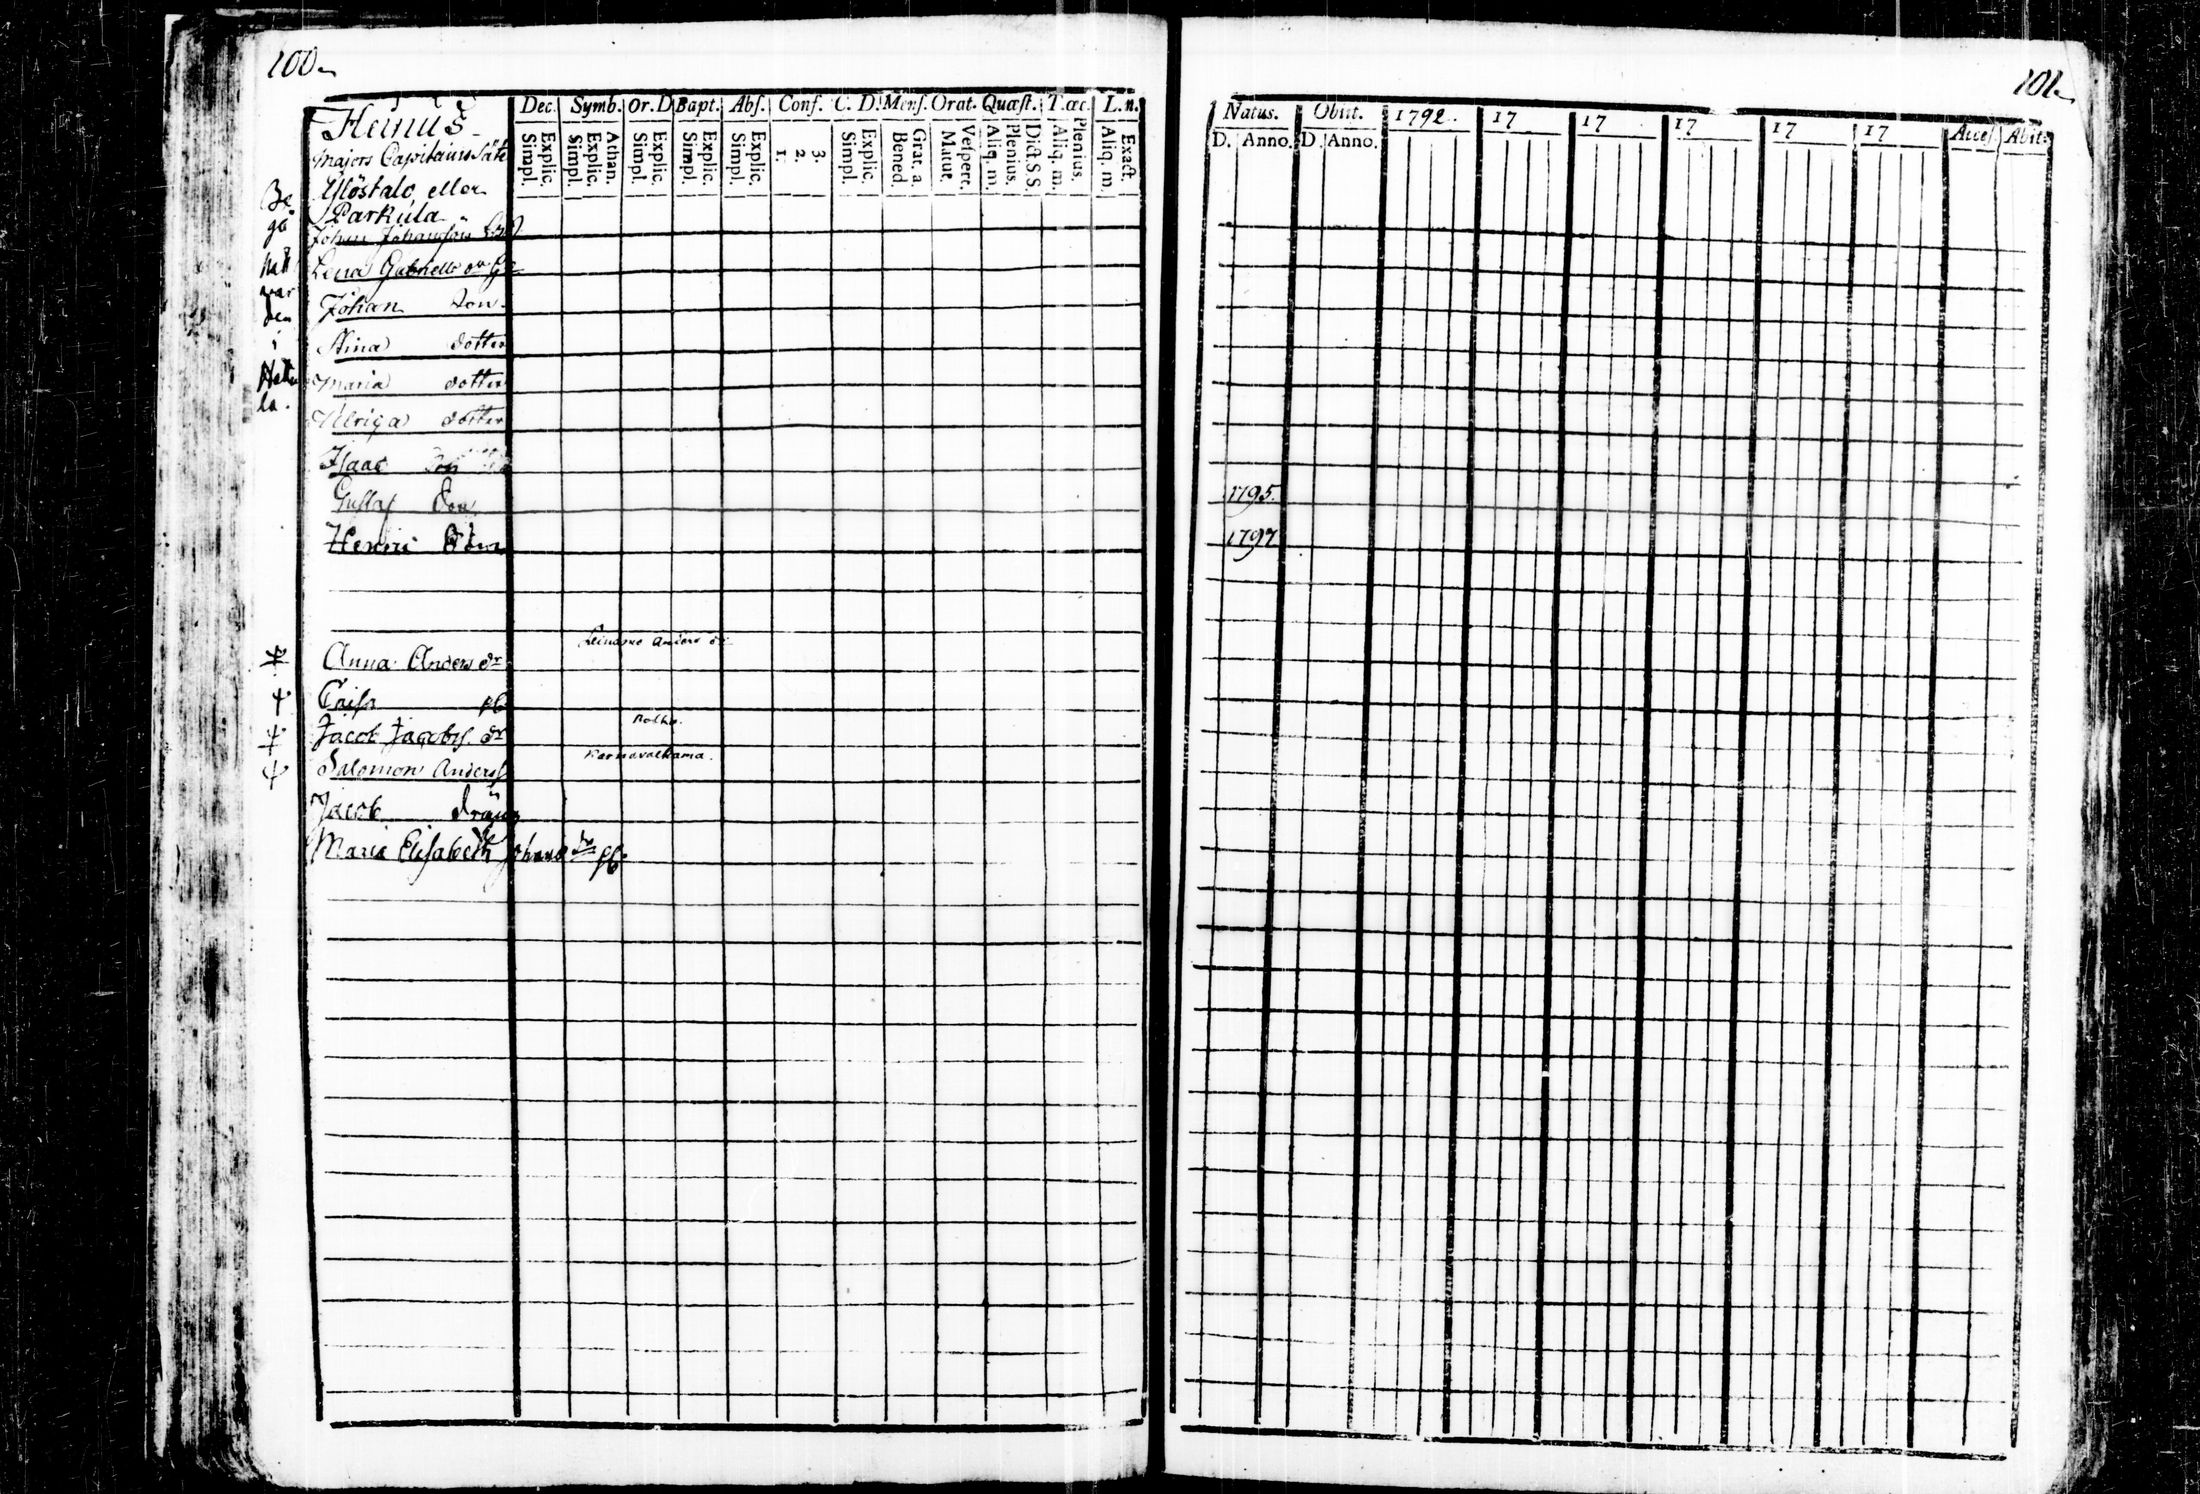 100
Heinus
Majors Capitains Säte
Ylöstalo eller
Parkula
Johan Johansson
Lena Gabriells dr
Johan Son
Stina dotter
Maria dotter
Ulrica dotter
Isaac Son
Gustaf Son
Henric Son
Anna Anders dr
Caisa pb
Jacob Jacobs. dr
Salomon Anderss
Jacob dräng
Maria Elisabeth Johans dr pb
Be
gå
natt
var
den
i
Hattu
la.
Dec. Symb. Or. D Bapt. Abs. Conf. C. D. Mens. Orat. Quæst. T. æc. L. n.
Explic. Simpl.
Athan. Explic. Simpl.
Explic. Simpl.
Explic. Simpl.
Explic. Simpl.
3. 2. 1.
Explic. Simpl.
Grat. a. Bened.
Vespert. Matut.
Dict. S.S. Plenius. Aliq. m.
Plenius. Aliq. m.
Exact. Aliq. m.
Anders dr
Karnavalkama.
101
Natus. Obiit. 1792. 17 17 17 17 17 Acces Abit.
D. Anno. D. Anno.
1795.
1797